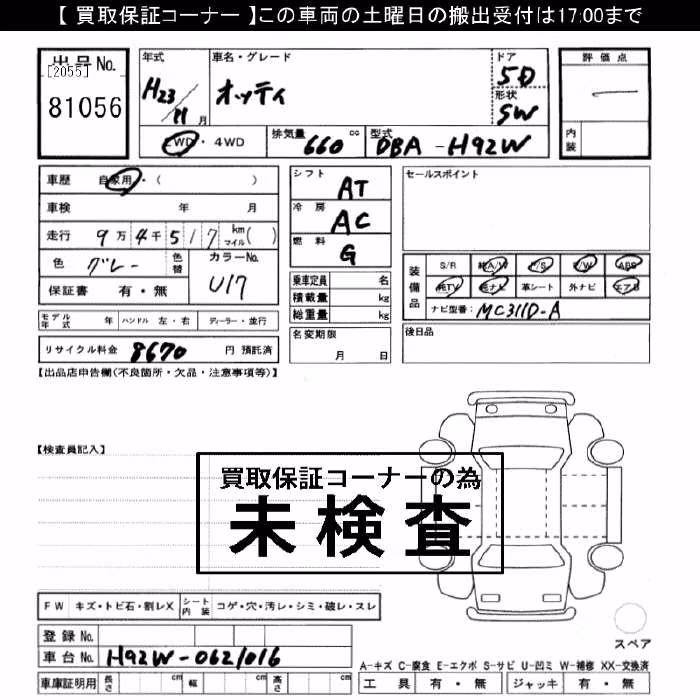 【 買取保証コーナー 】この車両の土曜日の搬出受付は17:00まで
出品No.
[2055]
81056
年式
H23/11月
車名・グレード
オッティ
ドア
5D
形状
SW
評価点
内装
2WD・4WD
排気量 660 cc
型式 DBA-H92W
車歴 自家用・( )
車検 年 月
走行 9万4千517 km マイル( )
色 グレー 色替
カラーNo. U17
保証書 有・無
モデル年式 年 ハンドル 左・右 ディーラー・並行
リサイクル料金 8670 円 預託済
シフト AT
冷房 AC
燃料 G
乗車定員 名
積載量 kg
総重量 kg
名変期限
月 日
セールスポイント
装備品
S/R 純A/W P/S P/W ABS
純TV 純ナビ 革シート 外ナビ エアB
ナビ型番: MC311D-A
後日品
【出品店申告欄(不良箇所・欠品・注意事項等)】
【検査員記入】
買取保証コーナーの為
未検査
FW キズ・トビ石・割レX シート内装 コゲ・穴・汚レ・シミ・破レ・スレ
スペア
登録No.
車台No. H92W-0621016
車庫証明用 長さ cm 幅 cm 高さ cm
A-キズ C-腐食 E-エクボ S-サビ U-凹ミ W-補修 XX-交換済
工具 有・無 ジャッキ 有・無